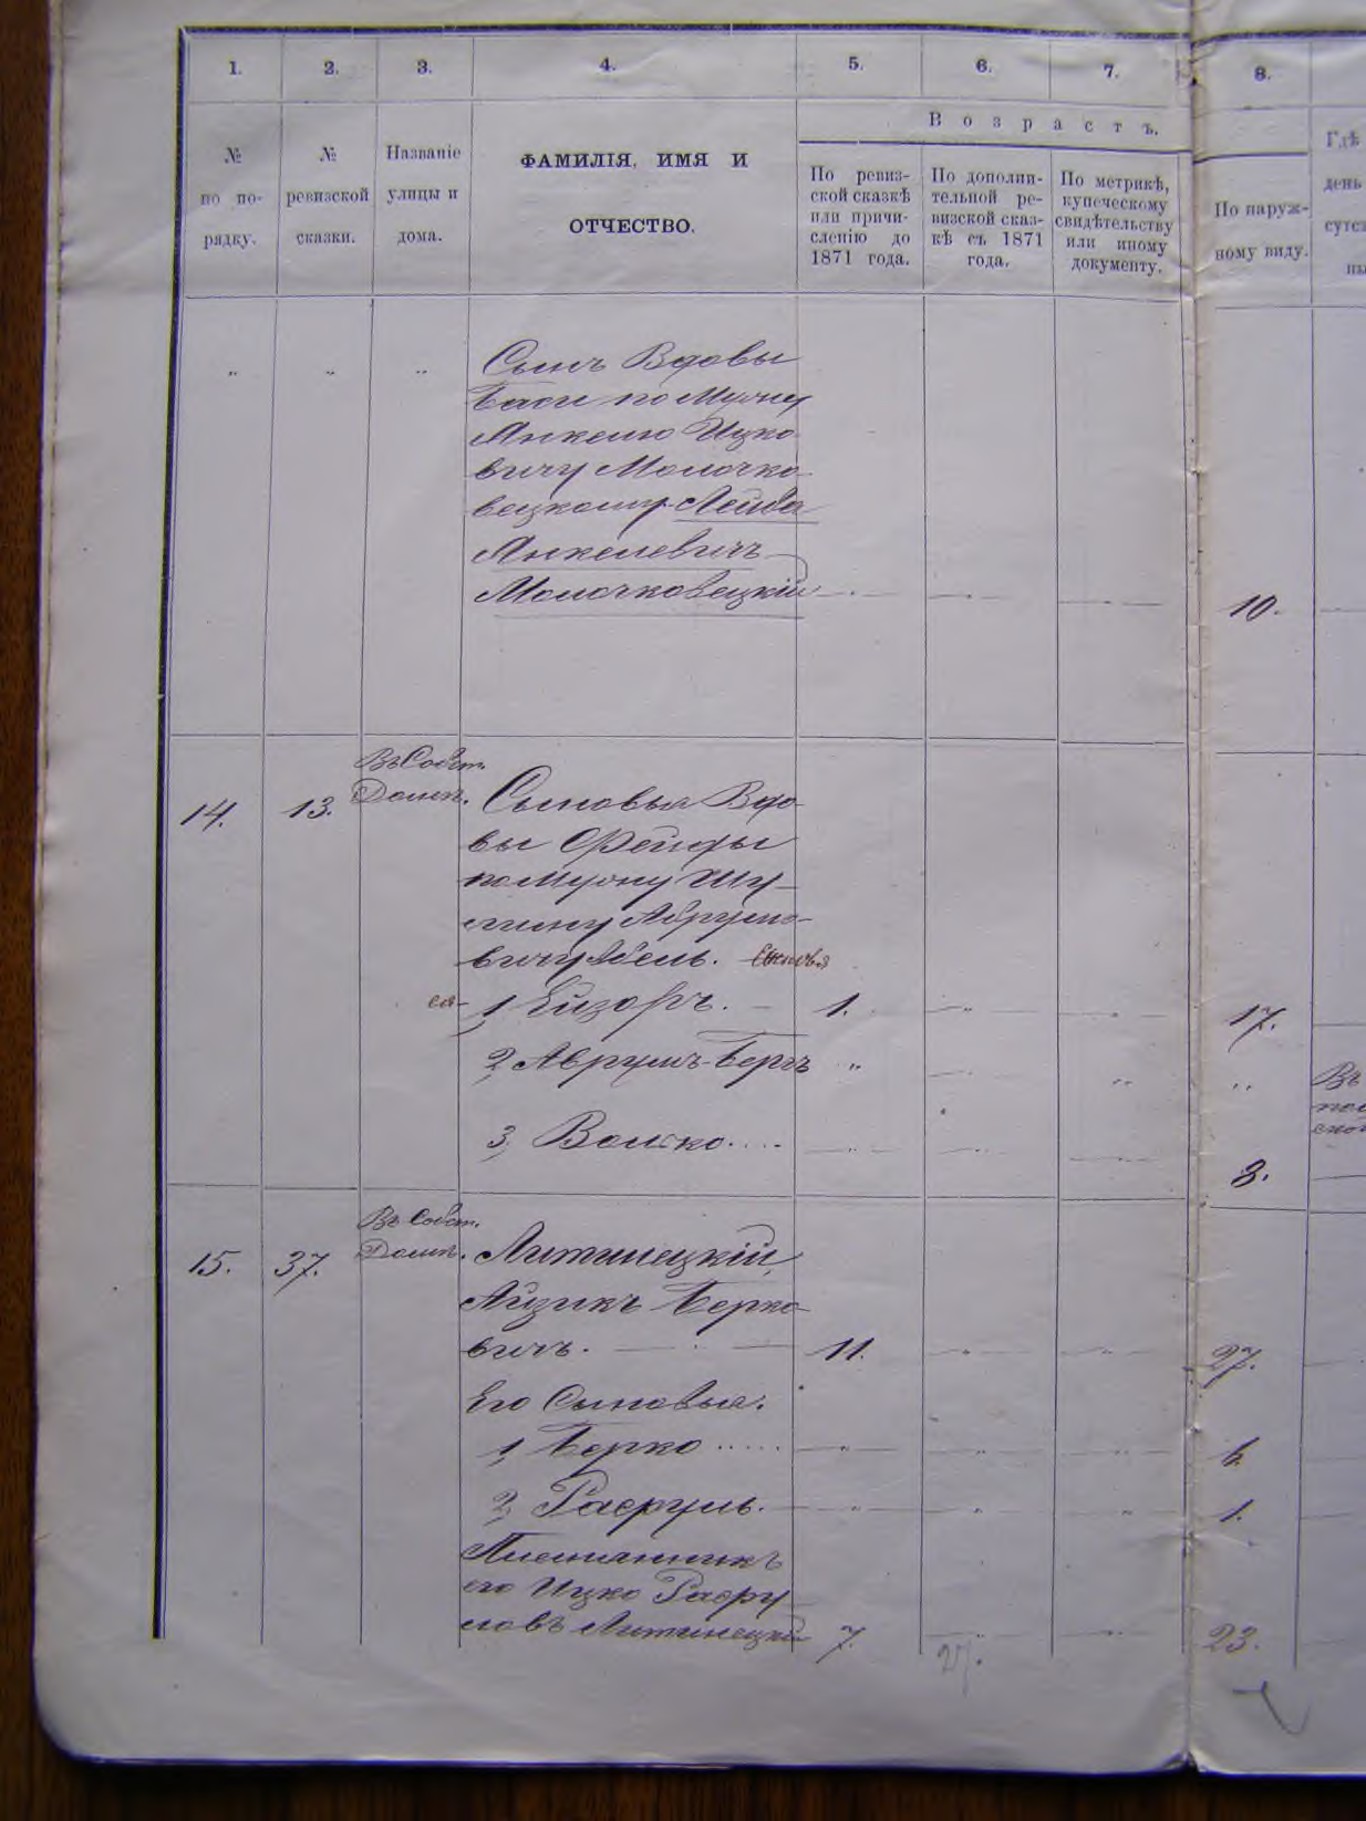 1. 2. 3. 4. 5. 6. 7. 8.
В о з р а с т ъ.
№ по по-рядку.
№ ревизской сказки.
Названіе улицы и дома.
ФАМИЛІЯ, ИМЯ И
ОТЧЕСТВО.
По ревиз-
ской сказкѣ
или причи-
сленію до
1871 года.
По дополни-
тельной ре-
визской сказ-
кѣ съ 1871
года.
По метрикѣ,
купеческому
свидѣтельству
или иному
документу.
По наруж-
ному виду.
Гдѣ
день
сутс
ны
" " "
Сынъ Вдовы
Баси по Мужу
Анкелю Ицко-
вичу Молочко-
вецкому Лейба
Анкелевичъ
Молочковецкій " " " 10.
14. 13. Въ Собст.
Домѣ.
Сыновья Вдо-
вы Фейги
по Мужу Шу-
лиму Абрумо-
вичу
1, Ейзоръ. 1. " " 17.
2, Аврумъ-Беръ " " " " Въ
3, Волько.... " " " 8.
15. 37. Въ Собст.
Домѣ.
Литинецкій,
Айзикъ Берко-
вичъ. 11. " " 27.
Его Сыновья:
1, Берко ..... " " " 6.
2, Расруль. " " " 1.
Племянникъ
его Ицко Расру-
ловъ Литинецкій 7. " " 23.
27.